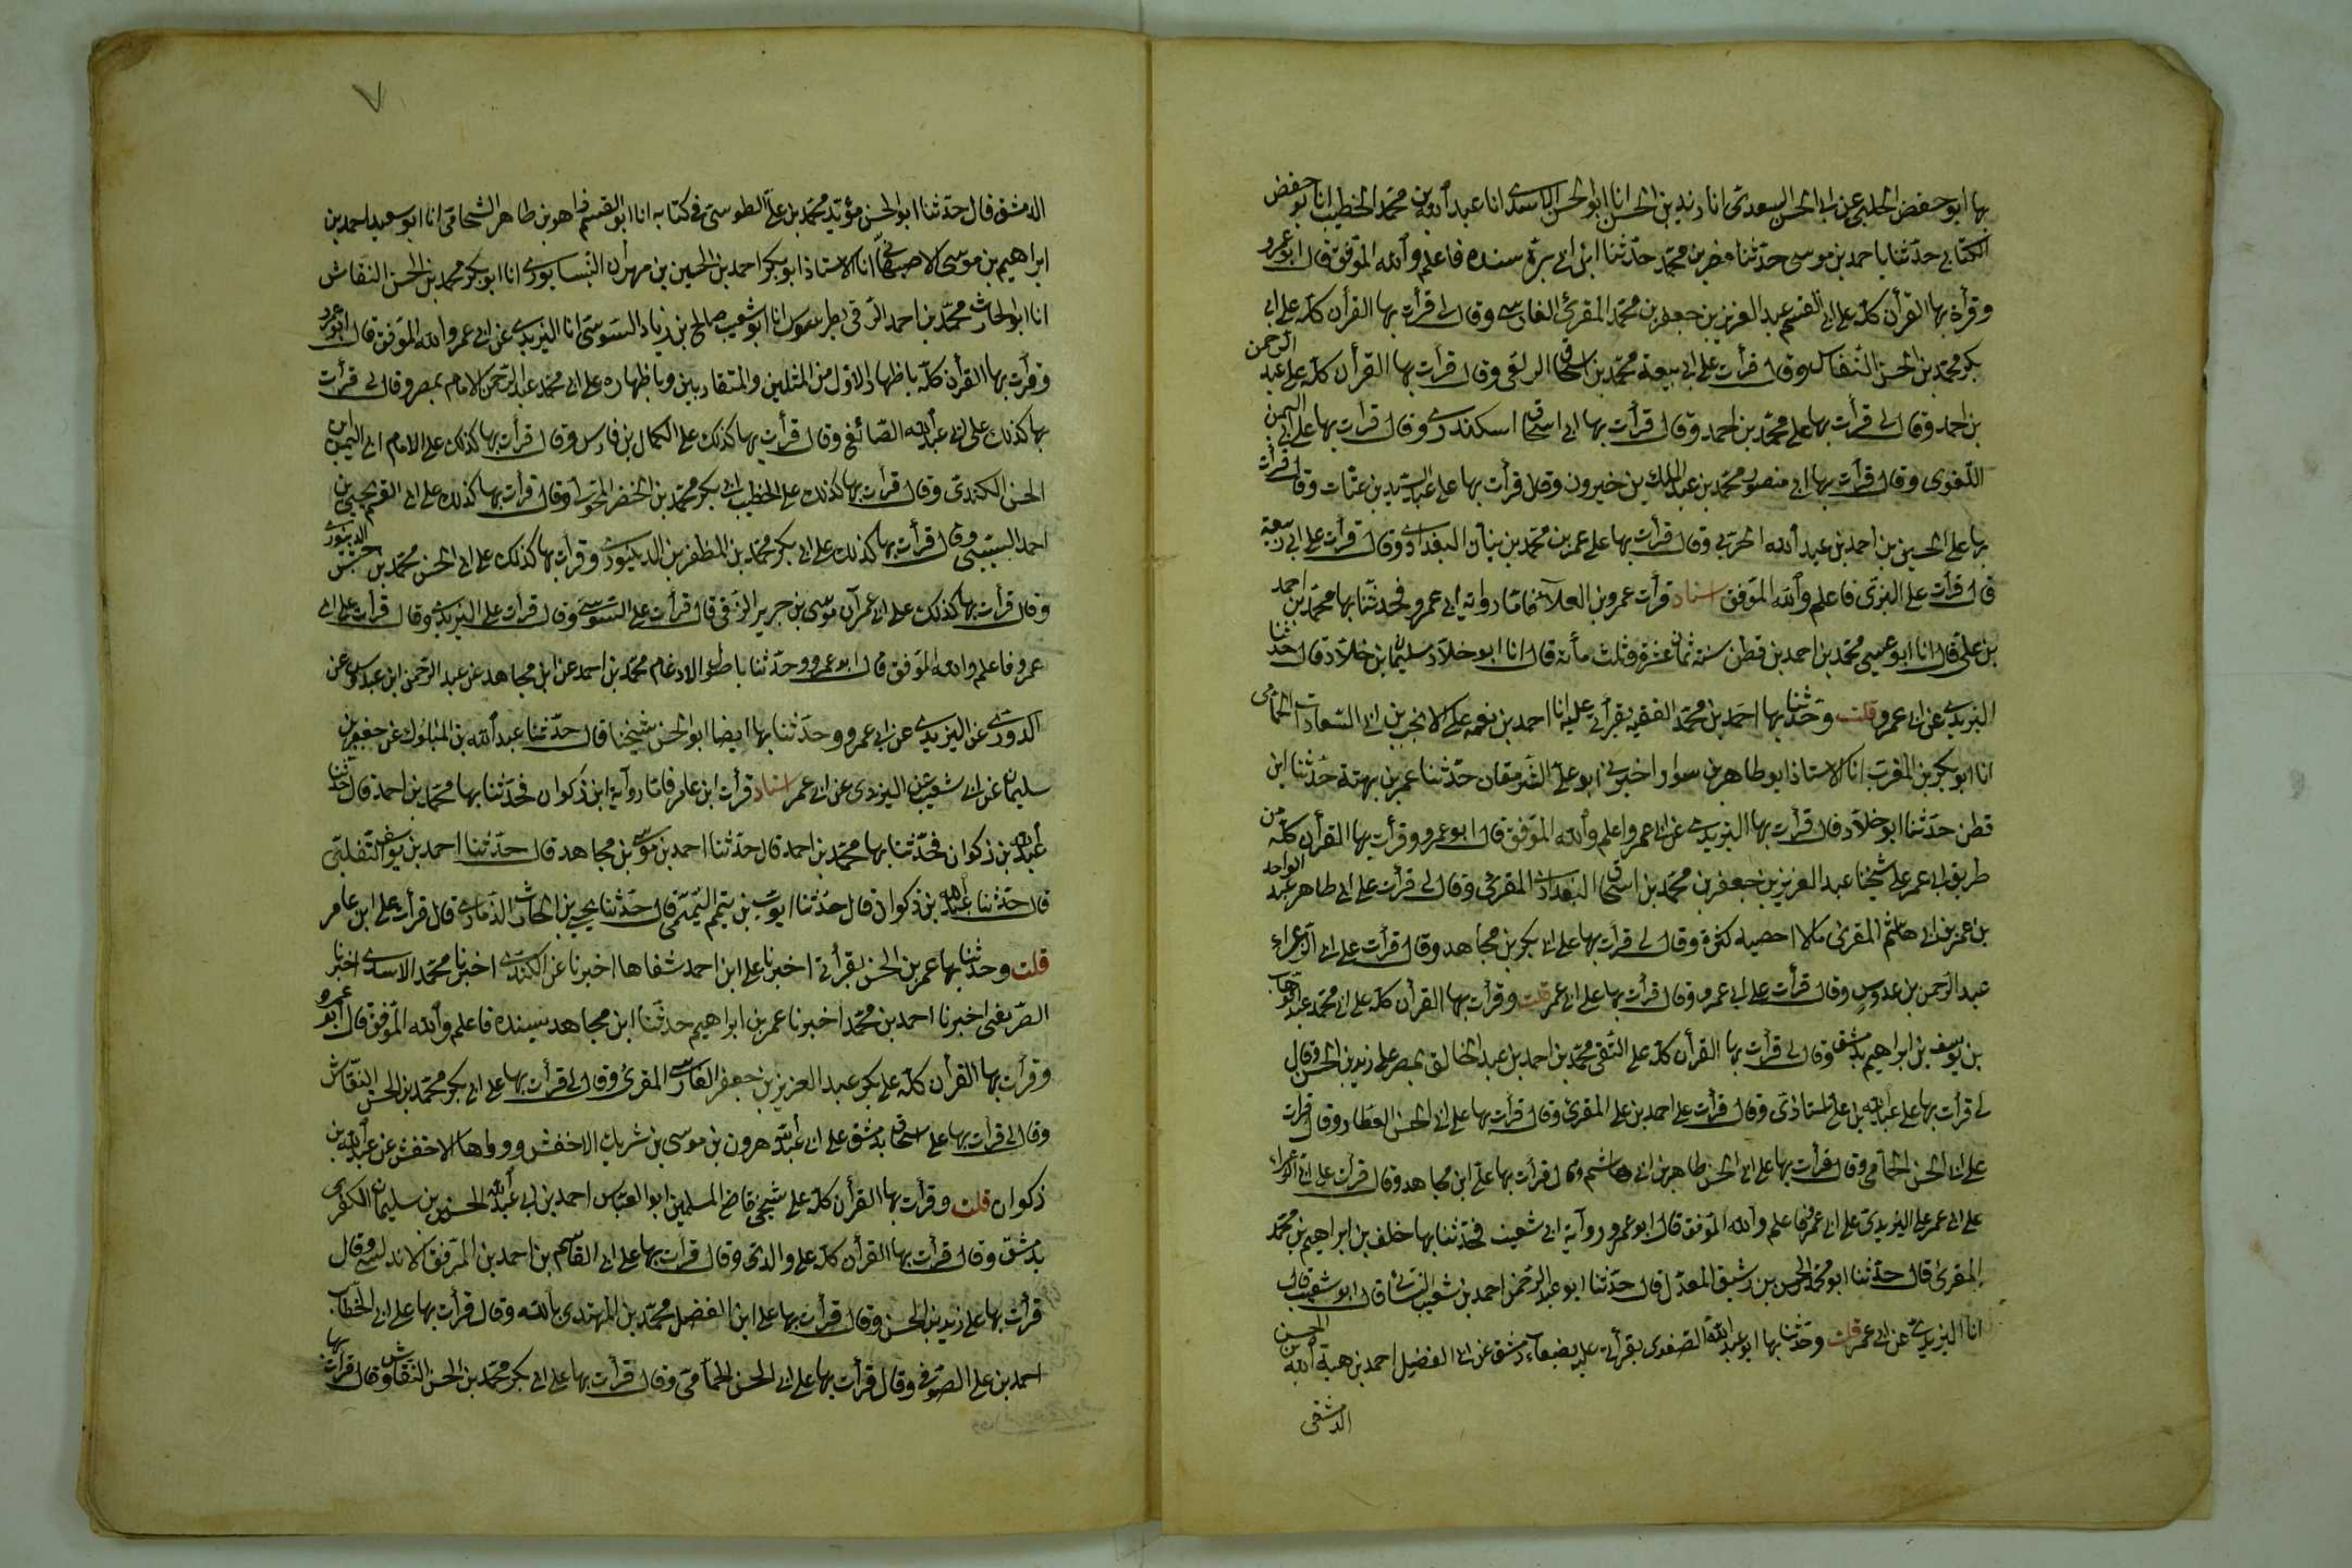 بها ابو حفص الحلبى عن ابى الحسن السعدى انا زيد بن الحسن انا ابو الحسن الاسدى انا عبد الله بن محمد الخطيب انا ابو حفص
الكتانى حدثنا احمد بن موسى حدثنا مضر بن محمد حدثنا ابن ابى بزة بسنده فاعلم والله الموفق قال ابو عمرو
وقرأت بها القرأن كله على ابى القسم عبد العزيز بن جعفر بن محمد المقرئ الفارسى وقال لى قرأت بها القرأن كله على ابى
بكر محمد بن الحسن النقاش وقال قرأت على ابى ربيعة محمد بن اسحاق الربعى وقال قرأت بها القرأن كله على عبد الرحمن
بن احمد وقال لى قرأت بها على محمد بن احمد وقال قرأت بها ابى اسحاق اسكندرى وقال قرأت بها على ابى اليمن
اللغوى وقال قرأت بها ابى منصور محمد بن عبد الملك بن خيرون وقال قرأت بها على عبد السيد بن عتاب وقال قرأت
بها على الحسين بن احمد بن عبد الله الحربى وقال قرأت بها على عمر بن محمد بن بنان البغدادى وقال قرأت على ابى ربيعة
قال قرأت على البزى فاعلم والله الموفق اسناد قرأت عمرو بن العلاء فاما رواية ابى عمرو فحدثنا بها محمد بن احمد
بن على قال انا ابو عيسى محمد بن احمد بن قطن سنة ثمان عشرة وثلث مأنة قال انا ابو خلاد سليمان بن خلاد قال حدثنا
اليزيدى عن ابى عمرو قلت وحدثنا بها احمد بن محمد الفقيه بقرأتى عليه انا احمد بن نعمه على الانجب بن ابى السعادات الحمامى
انا ابو بكر بن المقرب انا الاستاذ ابو طاهر بن سوار اخبرنى ابو على الشرمقان حدثنا عمر بن بهتة حدثنا ابن
قطن حدثنا ابو خلاد قال قرأت بها اليزيدى عن ابى عمرو اعلم والله الموفق قال ابو عمرو وقرأت بها القرأن كله من
طريق ابى عمر على شيخنا عبد العزيز بن جعفر بن محمد بن اسحاق البغدادى المقرئ وقال لى قرأت على ابى طاهر عبد الواحد
بن عمر بن ابى هاشم المقرئ مالا احصيه كثرة وقال لى قرأت بها على ابى بكر بن مجاهد وقال قرأت على ابى الزعراء
عبد الرحمن بن عدوس وقال قرأت على ابى عمرو وقال قرأت بها على ابى عمر قلت وقرأت بها القرأن كله على ابى محمد عبد الوهاب
بن يوسف بن ابراهيم بدمشق وقال لى قرأت بها القرأن كله على التقى محمد بن احمد بن عبد الخالق بمصر على زيد بن الحسن وقال
لى قرأت بها على عبد الله بن على الاستاذى وقال قرأت على احمد بن على المقرئ وقال قرأت بها على ابى الحسن العطار وقال قرأت
على ابى الحسن الحمامى وقال قرأت بها على ابى الحسن طاهر بن ابى هاشم وقال قرأت بها على ابن مجاهد وقال قرأت على ابى الزعراء
على ابى عمر على اليزيدى على ابى عمرو فاعلم والله الموفق قال ابو عمرو رواية ابى شعيب فحدثنا بها خلف بن ابراهيم بن محمد
المقرئ قال حدثنا ابو محمد الحسن بن رشيق المعدل قال حدثنا ابو عبد الرحمن احمد بن شعيب النسائى قال ابو شعيب قال
انا اليزيدى عن ابى عمر قلت وحدثنا بها ابو عبد الله الصفدى بقرأتى عليه بضعاء دمشق عن ابى الفضل احمد بن هبة الله بن الحسن
الدمشقى
٧
الدمشق قال حدثنا ابو الحسن مؤيد محمد بن على الطوسى فى كتابه انا ابو القسم زاهر بن طاهر الشحامى انا ابو سعيد احمد بن
ابراهيم بن موسى الاصبهانى انا الاستاذ ابو بكر احمد بن الحسين بن مهران النيسابورى انا ابو بكر محمد بن الحسن النقاش
انا ابو الحارث محمد بن احمد الرقى بطرسوس انا ابو شعيب صالح بن زياد السوسى انا اليزيدى عن ابى عمرو الله الموفق قال ابو عمرو
وقرأت بها القرأن كله باظهار الاول من المثلين والمتقاربين وباظهاره على ابى محمد عبد الرحمن الامام بمصر وقال لى قرأت
بها كذلك على ابى عبد الله الصائغ وقال قرأت بها كذلك على الكمال بن فارس وقال قرأت بها كذلك على الامام ابى اليمن ابن
الحسن الكندى وقال قرأت بها كذلك على الخطيب ابى بكر محمد بن الخضر المحولى وقال قرأت بها كذلك على ابى القسم يحيى بن
احمد السيبى وقال قرأت بها كذلك على ابى بكر محمد بن المظفر بن الدينورى وقرأت بها كذلك على ابى الحسن محمد بن حبش الدينورى
وقال قرأت بها كذلك على ابى عمران موسى بن جرير الرقى قال قرأت على السوسى وقال قرأت على اليزيدى وقال قرأت على ابى
عمرو فاعلم والله الموفق قال ابو عمرو وحدثنا باصول الادغام محمد بن احمد عن ابن مجاهد عن عبد الرحمن ابن عبدوس عن
الدورى عن اليزيدى عن ابى عمرو وحدثنا بها ايضا ابو الحسن شيخنا قال حدثنا عبد الله بن المبارك عن جعفر بن
سليمان عن ابى شعيب عن اليزيدى عن ابى عمر اسناد قرأت ابن عامر فاما رواية ابن ذكوان فحدثنا بها محمد بن احمد قال حدثنا
عبد الله بن ذكوان فحدثنا بها محمد بن احمد قال حدثنا احمد بن موسى بن مجاهد قال حدثنا احمد بن يوسف التغلبى
قال حدثنا عبد الله بن ذكوان قال حدثنا ايوب بن تميم التميمى قال حدثنا يحيى بن الحارث الذمارى قال قرأت على ابن عامر
قلت وحدثنا بها عمر بن الحسن بقرأتى اخبرنا على ابن احمد شفاها اخبرنا عن الكندى اخبرنا محمد الاسدى اخبرنا
الصريفنى اخبرنا احمد بن محمد اخبرنا عمر بن ابراهيم حدثنا ابن مجاهد بسنده فاعلم والله الموفق قال ابو عمرو
وقرأت بها القرأن كله على بكر عبد العزيز بن جعفر الفارسى المقرئ وقال لى قرأت بها على ابى بكر محمد بن الحسن النقاش
وقال لى قرأت بها على اسحاق بدمشق على ابى عبد الله هرون بن موسى بن شريك الاخفش ورواها الاخفش عن عبد الله بن
ذكوان قلت وقرأت بها القرأن كله على شيخى قاضى المسلمين ابو العباس احمد بن ابى عبد الله الحسين بن سليمان الكفرى
بدمشق وقال قرأت بها القرأن كله على والدى وقال قرأت بها على ابى القاسم بن احمد بن الموفق الاندلسى وقال
قرأت بها على زيد بن الحسن وقال قرأت بها على ابن الفضل محمد بن المهتدى بالله وقال قرأت بها على ابى الخطاب
احمد بن على الصوفى وقال قرأت بها على ابى الحسن الحمامى وقال قرأت بها على ابى بكر محمد بن الحسن النقاش وقال قرأت بها